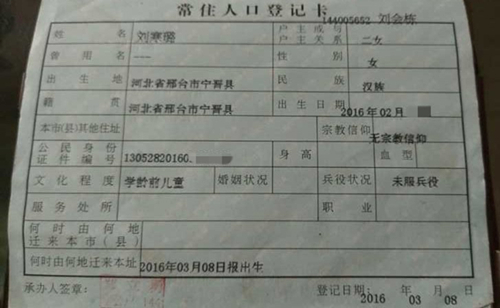 常住人口登记卡
144005652 刘会栋
姓 名 刘寒璐 户主或与户主关系 二女
曾用名 --- 性 别 女
出生地 河北省邢台市宁晋县 民 族 汉族
籍 贯 河北省邢台市宁晋县 出生日期 2016年02月
本市(县)其他住址 宗教信仰 无宗教信仰
公民身份证件编号 13052820160 身 高 血 型
文化程度 学龄前儿童 婚姻状况 兵役状况 未服兵役
服务处所 职 业
何时由何地迁来本市(县)
何时由何地迁来本址 2016年03月08日报出生
承办人签章: 登记日期: 2016 年 03 月 08 日